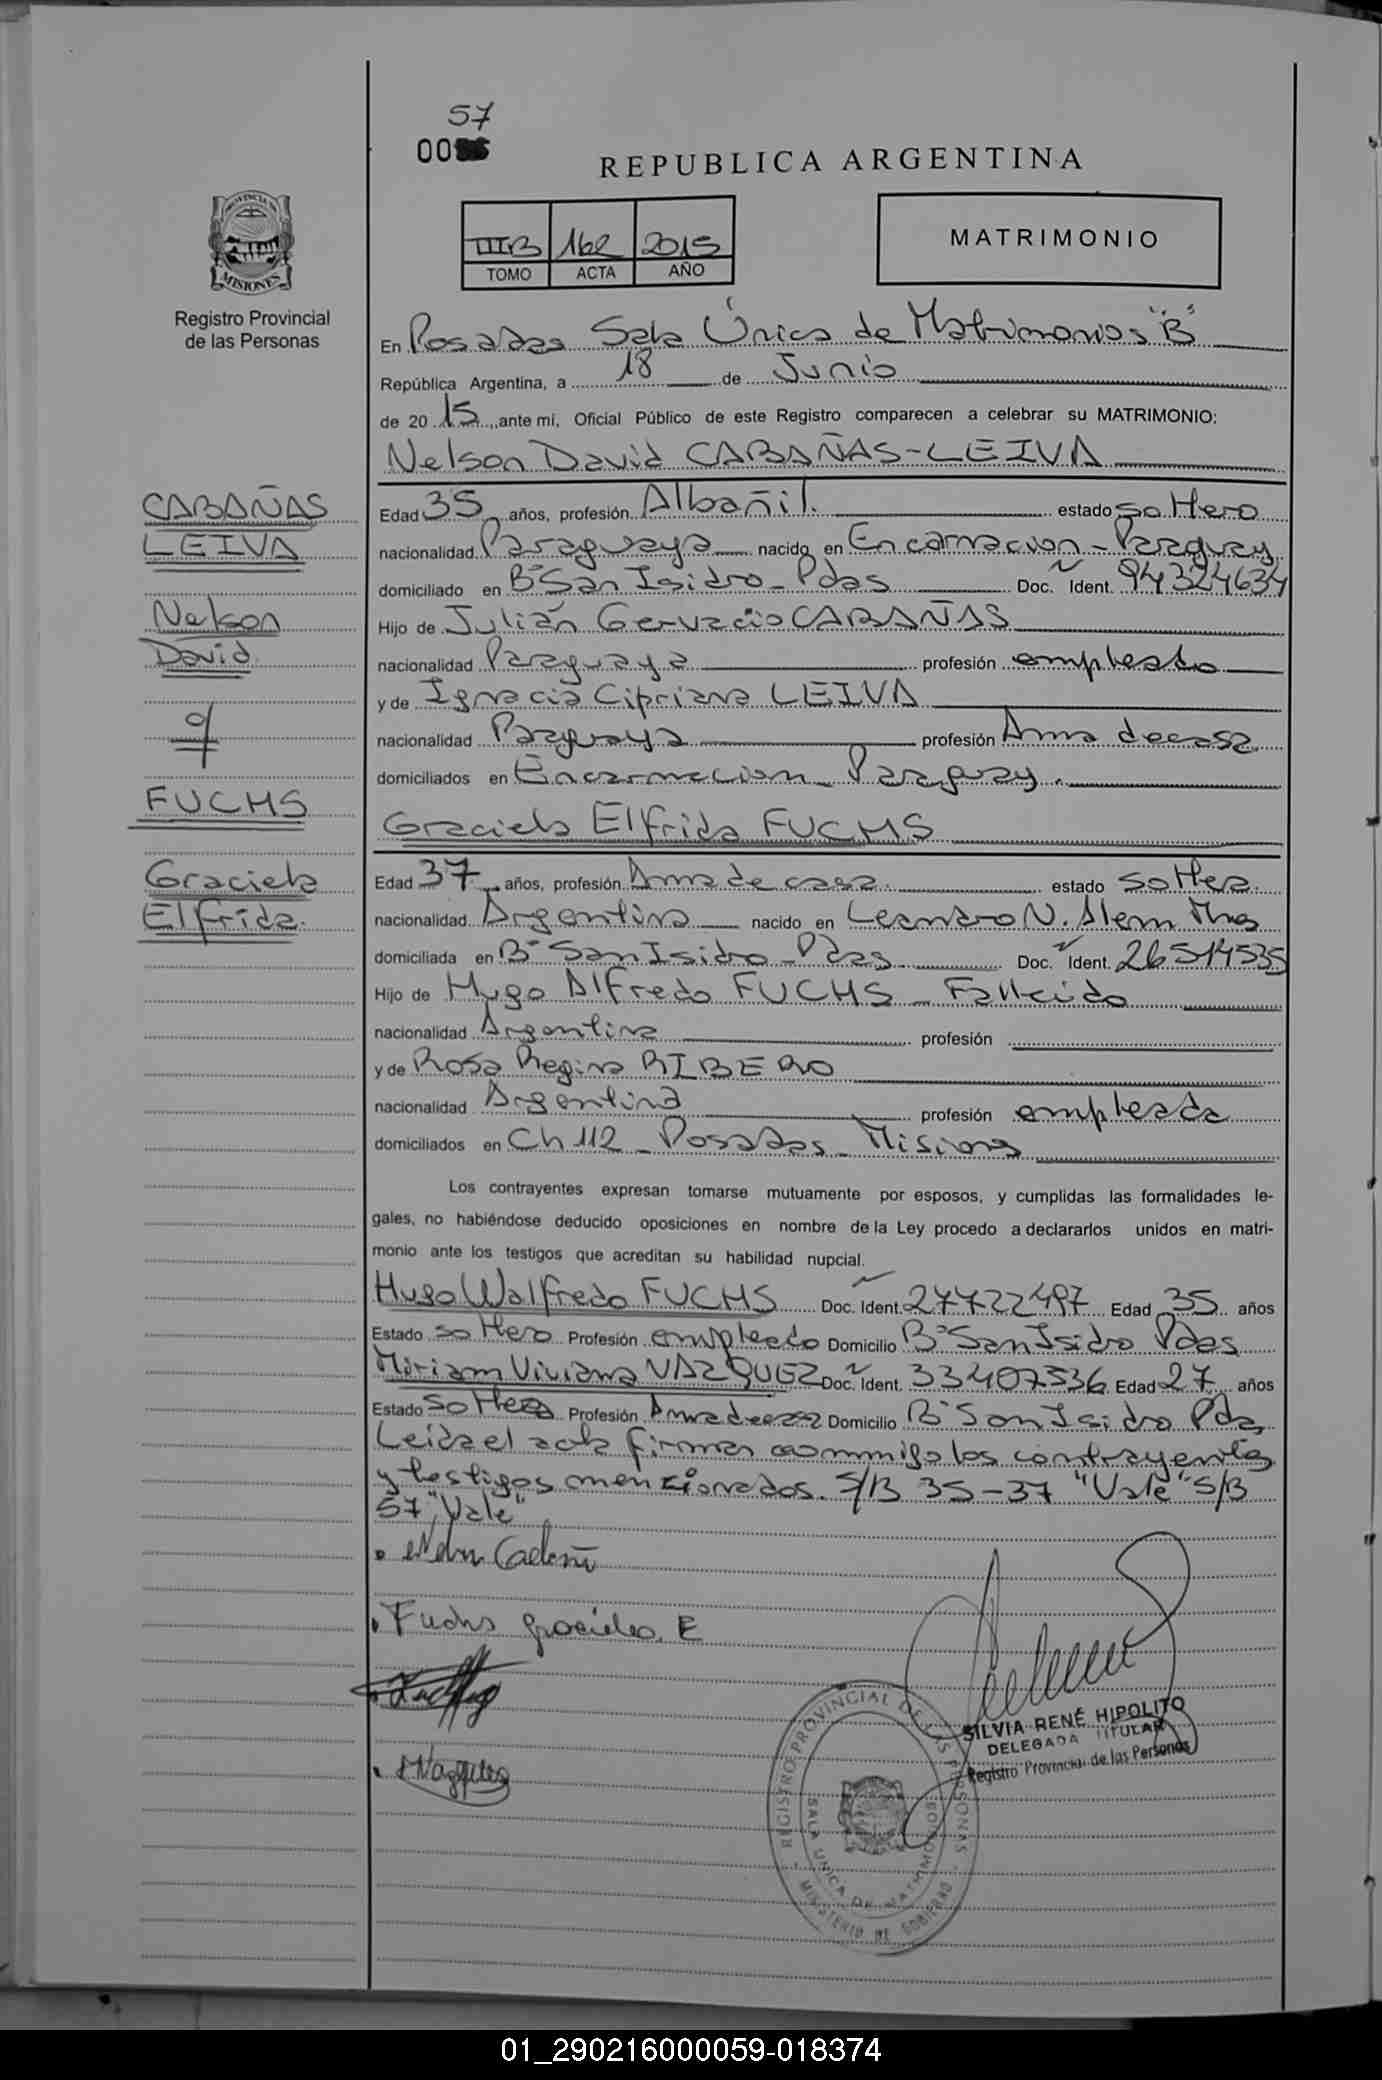 57
00
REPUBLICA ARGENTINA
PROVINCIA DE
MISIONES
Registro Provincial
de las Personas
IIIB 162 2015
TOMO ACTA AÑO
MATRIMONIO
En Posadas Sala Única de Matrimonios "B"
República Argentina, a 18 de Junio
de 2015, ante mi, Oficial Público de este Registro comparecen a celebrar su MATRIMONIO:
Nelson David CABAÑAS-LEIVA
CABAÑAS
LEIVA
Nelson
David
FUCHS
Graciela
Elfrida.
Edad 35 años, profesión Albañil. estado soltero
nacionalidad Paraguaya nacido en Encarnacion - Paraguay
domiciliado en B° San Isidro - Pdas Doc. Ident. 94324634
Hijo de Julián Gervacio CABAÑAS
nacionalidad Paraguaya profesión empleado
y de Ignacia Cipriana LEIVA
nacionalidad Paraguaya profesión Ama de casa
domiciliados en Encarnacion - Paraguay.
Graciela Elfrida FUCHS
Edad 37 años, profesión Ama de casa. estado soltera
nacionalidad Argentina nacido en Leandro N. Alem Mnes
domiciliada en B° San Isidro - Pdas Doc. Ident. 26514535
Hijo de Hugo Alfredo FUCHS - Fallecido
nacionalidad Argentina profesión
y de Rosa Regina RIBERO
nacionalidad Argentina profesión empleada
domiciliados en Ch 112 - Posadas - Misiones
Los contrayentes expresan tomarse mutuamente por esposos, y cumplidas las formalidades le-
gales, no habiéndose deducido oposiciones en nombre de la Ley procedo a declararlos unidos en matri-
monio ante los testigos que acreditan su habilidad nupcial.
Hugo Walfredo FUCHS Doc. Ident. 27722497 Edad 35 años
Estado soltero Profesión empleado Domicilio B° San Isidro Pdas
Miriam Viviana VAZQUEZ Doc. Ident. 33407336 Edad 27 años
Estado soltera Profesión Ama de casa Domicilio B° San Isidro Pdas
Leida el acta firman conmigo los contrayentes
y testigos mencionados. S/B 35-37 "Vale" S/B
57 "Vale"
Fuchs graciela. E
Vazquez
SILVIA RENÉ HIPOLITO
DELEGADA TITULAR
Registro Provincial de las Personas
REGISTRO PROVINCIAL DE LAS PERSONAS
SALA UNICA DE MATRIMONIOS
MINISTERIO DE GOBIERNO
01_290216000059-018374